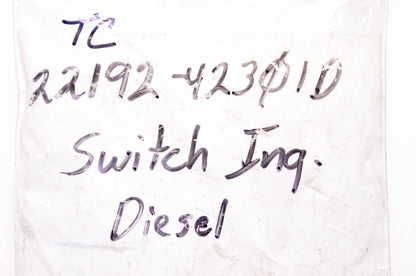 TC
22192-42301D
Switch Inq.
Diesel